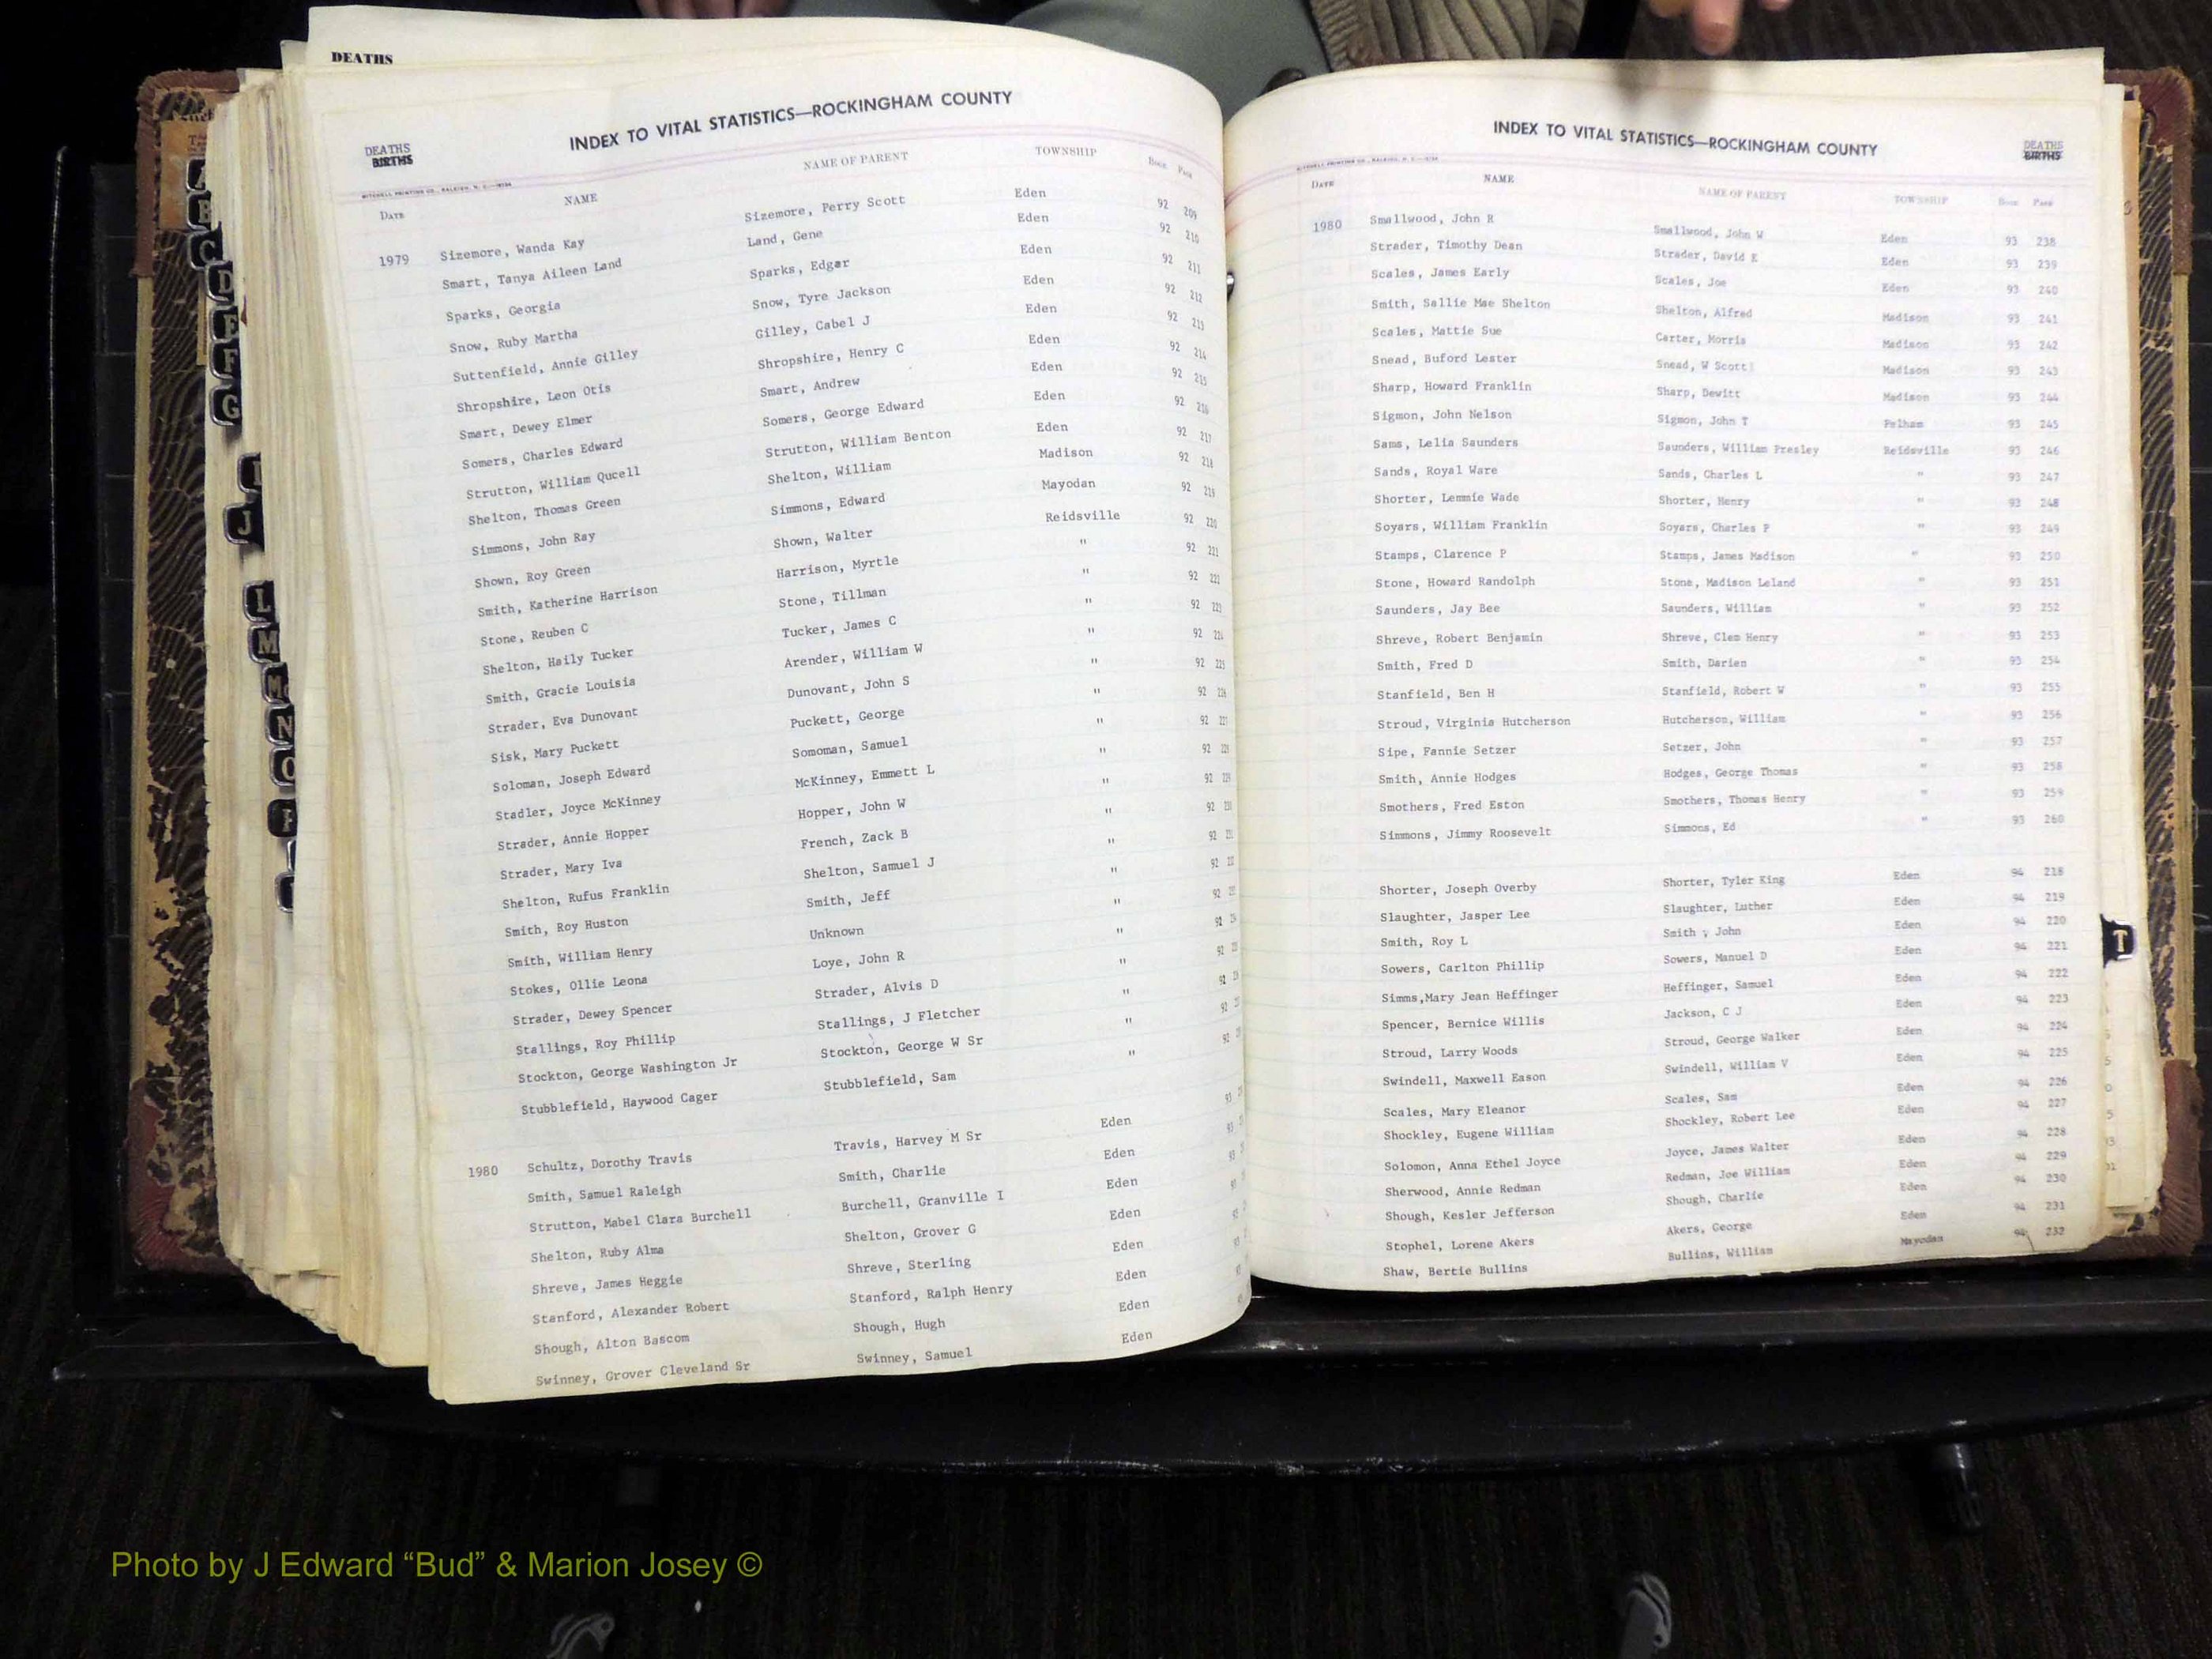 DEATHS
INDEX TO VITAL STATISTICS—ROCKINGHAM COUNTY
DEATHS
BIRTHS
MITCHELL PRINTING CO., RALEIGH, N. C.
DATE NAME NAME OF PARENT TOWNSHIP BOOK PAGE
1979 Sizemore, Wanda Kay Sizemore, Perry Scott Eden 92 209
Smart, Tanya Aileen Land Land, Gene Eden 92 210
Sparks, Georgia Sparks, Edgar Eden 92 211
Snow, Ruby Martha Snow, Tyre Jackson Eden 92 212
Suttenfield, Annie Gilley Gilley, Cabel J Eden 92 213
Shropshire, Leon Otis Shropshire, Henry C Eden 92 214
Smart, Dewey Elmer Smart, Andrew Eden 92 215
Somers, Charles Edward Somers, George Edward Eden 92 216
Strutton, William Qucell Strutton, William Benton Eden 92 217
Shelton, Thomas Green Shelton, William Madison 92 218
Simmons, John Ray Simmons, Edward Mayodan 92 219
Shown, Roy Green Shown, Walter Reidsville 92 220
Smith, Katherine Harrison Harrison, Myrtle " 92 221
Stone, Reuben C Stone, Tillman " 92
Shelton, Haily Tucker Tucker, James C " 92 223
Smith, Gracie Louisia Arender, William W " 92 224
Strader, Eva Dunovant Dunovant, John S " 92 225
Sisk, Mary Puckett Puckett, George " 92 226
Soloman, Joseph Edward Somoman, Samuel " 92 227
Stadler, Joyce McKinney McKinney, Emmett L " 92
Strader, Annie Hopper Hopper, John W " 92
Strader, Mary Iva French, Zack B " 92
Shelton, Rufus Franklin Shelton, Samuel J " 92
Smith, Roy Huston Smith, Jeff " 92
Smith, William Henry Unknown " 92
Stokes, Ollie Leona Loye, John R " 92
Strader, Dewey Spencer Strader, Alvis D " 92
Stallings, Roy Phillip Stallings, J Fletcher " 92
Stockton, George Washington Jr Stockton, George W Sr " 92
Stubblefield, Haywood Cager Stubblefield, Sam " 92
1980 Schultz, Dorothy Travis Travis, Harvey M Sr Eden 93
Smith, Samuel Raleigh Smith, Charlie Eden 93
Strutton, Mabel Clara Burchell Burchell, Granville I Eden 93
Shelton, Ruby Alma Shelton, Grover G Eden
Shreve, James Heggie Shreve, Sterling Eden
Stanford, Alexander Robert Stanford, Ralph Henry Eden
Shough, Alton Bascom Shough, Hugh Eden
Swinney, Grover Cleveland Sr Swinney, Samuel Eden
A
B
C
D
E
F
G
I
J
L
M
Mc
N
O
P
INDEX TO VITAL STATISTICS—ROCKINGHAM COUNTY
DEATHS
BIRTHS
MITCHELL PRINTING CO., RALEIGH, N. C.
DATE NAME NAME OF PARENT TOWNSHIP BOOK PAGE
1980 Smallwood, John R Smallwood, John W Eden 93 238
Strader, Timothy Dean Strader, David E Eden 93 239
Scales, James Early Scales, Joe Eden 93 240
Smith, Sallie Mae Shelton Shelton, Alfred Madison 93 241
Scales, Mattie Sue Carter, Morris Madison 93 242
Snead, Buford Lester Snead, W Scott Madison 93 243
Sharp, Howard Franklin Sharp, Dewitt Madison 93 244
Sigmon, John Nelson Sigmon, John T Pelham 93 245
Sams, Lelia Saunders Saunders, William Presley Reidsville 93 246
Sands, Royal Ware Sands, Charles L " 93 247
Shorter, Lemmie Wade Shorter, Henry " 93 248
Soyars, William Franklin Soyars, Charles P " 93 249
Stamps, Clarence P Stamps, James Madison " 93 250
Stone, Howard Randolph Stone, Madison Leland " 93 251
Saunders, Jay Bee Saunders, William " 93 252
Shreve, Robert Benjamin Shreve, Clem Henry " 93 253
Smith, Fred D Smith, Darien " 93 254
Stanfield, Ben H Stanfield, Robert W " 93 255
Stroud, Virginia Hutcherson Hutcherson, William " 93 256
Sipe, Fannie Setzer Setzer, John " 93 257
Smith, Annie Hodges Hodges, George Thomas " 93 258
Smothers, Fred Eston Smothers, Thomas Henry " 93 259
Simmons, Jimmy Roosevelt Simmons, Ed " 93 260
Shorter, Joseph Overby Shorter, Tyler King Eden 94 218
Slaughter, Jasper Lee Slaughter, Luther Eden 94 219
Smith, Roy L Smith , John Eden 94 220
Sowers, Carlton Phillip Sowers, Manuel D Eden 94 221
Simms,Mary Jean Heffinger Heffinger, Samuel Eden 94 222
Spencer, Bernice Willis Jackson, C J Eden 94 223
Stroud, Larry Woods Stroud, George Walker Eden 94 224
Swindell, Maxwell Eason Swindell, William V Eden 94 225
Scales, Mary Eleanor Scales, Sam Eden 94 226
Shockley, Eugene William Shockley, Robert Lee Eden 94 227
Solomon, Anna Ethel Joyce Joyce, James Walter Eden 94 228
Sherwood, Annie Redman Redman, Joe William Eden 94 229
Shough, Kesler Jefferson Shough, Charlie Eden 94 230
Stophel, Lorene Akers Akers, George Eden 94 231
Shaw, Bertie Bullins Bullins, William Mayodan 94 232
T
Photo by J Edward “Bud” & Marion Josey ©